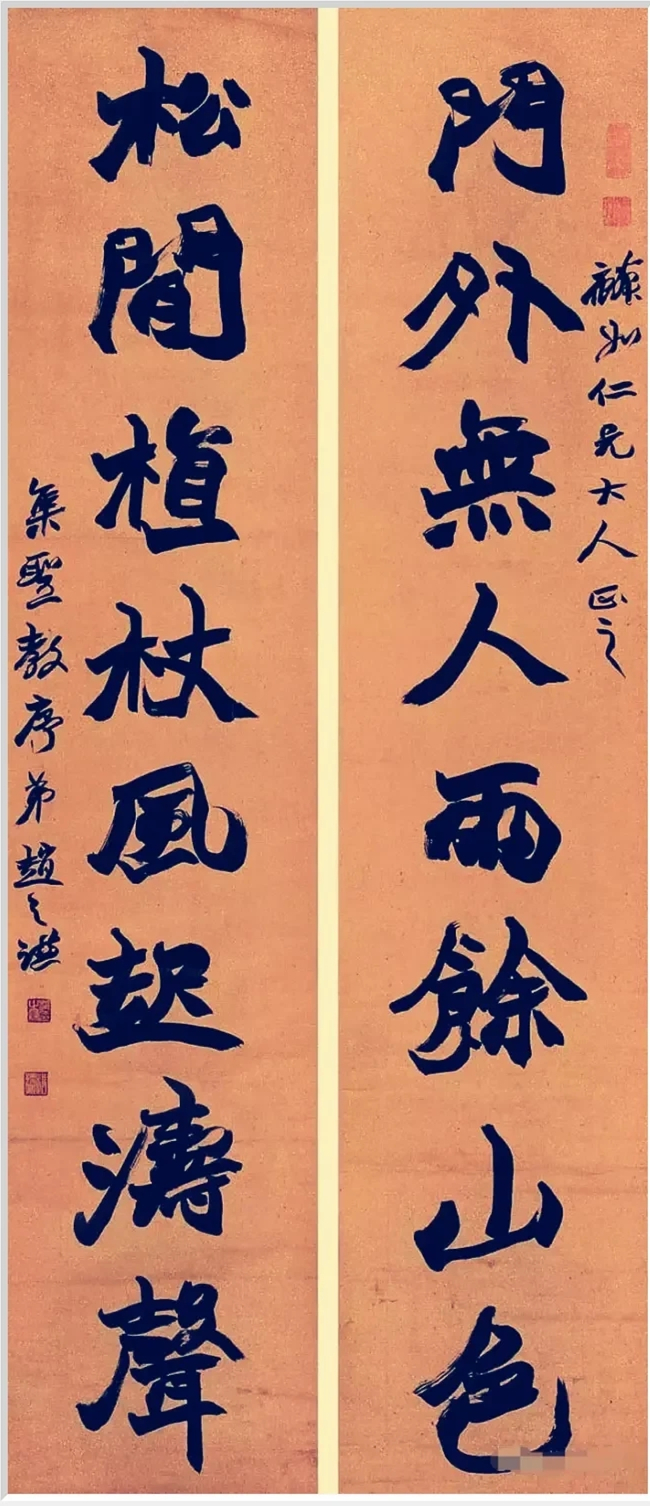 門外無人雨餘山色
如仁兄大人正之
松間植杖風起濤聲
集聖教序弟趙之謙